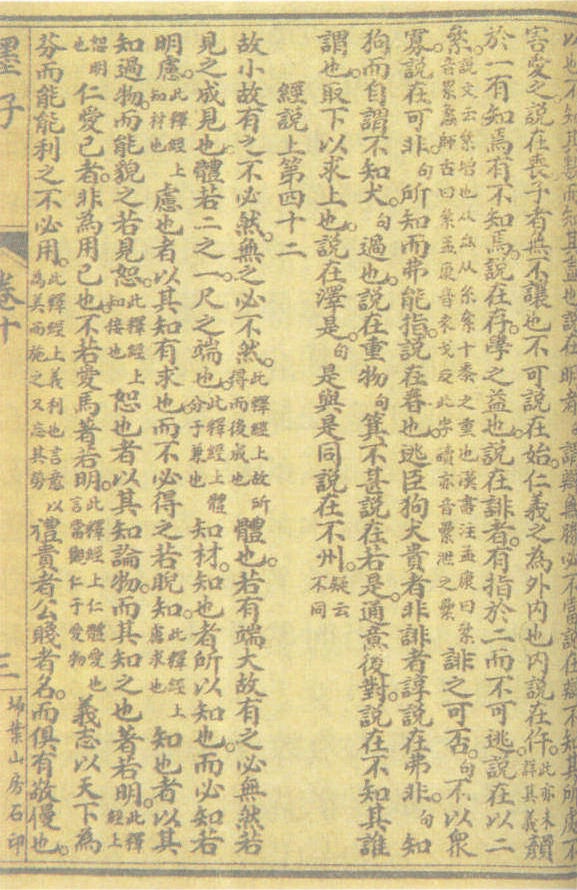 以也不知其數而知其盡也說在明者句謂辯無勝必不當說在辯不知其所處不
害愛之說在喪子者無不讓也不可說在始仁義之為外內也內說在仵此亦未詳其義顏
於一有知焉有不知焉說在存學之益也說在誹者有指於二而不可逃說在以二
絫說文云絫增也从厽从糸絫十黍之重也漢書注孟康曰絫音累蠡師古曰絫孟康音來戈反此字讀亦音累泄之累誹之可否句不以眾
寡說在可非句所知而弗能指說在春也逃臣狗犬貴者非誹者諄說在弗非句知
狗而自謂不知犬句過也說在重物句箕不甚說在若是通意後對說在不知其誰
謂也取下以求上也說在澤是句是與是同說在不州疑云不同
經說上第四十二
故小故有之不必然無之必不然此釋經上故所得而後成也體也若有端大故有之必無然若
見之成見也體若二之一尺之端也此釋經上體分于兼也知材知也者所以知也而必知若
明慮此釋經上知材也慮也者以其知有求也而不必得之若睨知此釋經上慮求也知也者以其
知過物而能貌之若見恕此釋經上知接也恕也者以其知論物而其知之也著若明此釋經上
恕明也仁愛己者非為用己也不若愛馬著若明此釋經上仁體愛也言當觀仁于愛物義志以天下為
芬而能能利之不必用此釋經上義利也言意以為美而施之又忘其勞禮貴者公賤者名而俱有敬僈也
墨子
卷十
三
掃葉山房石印